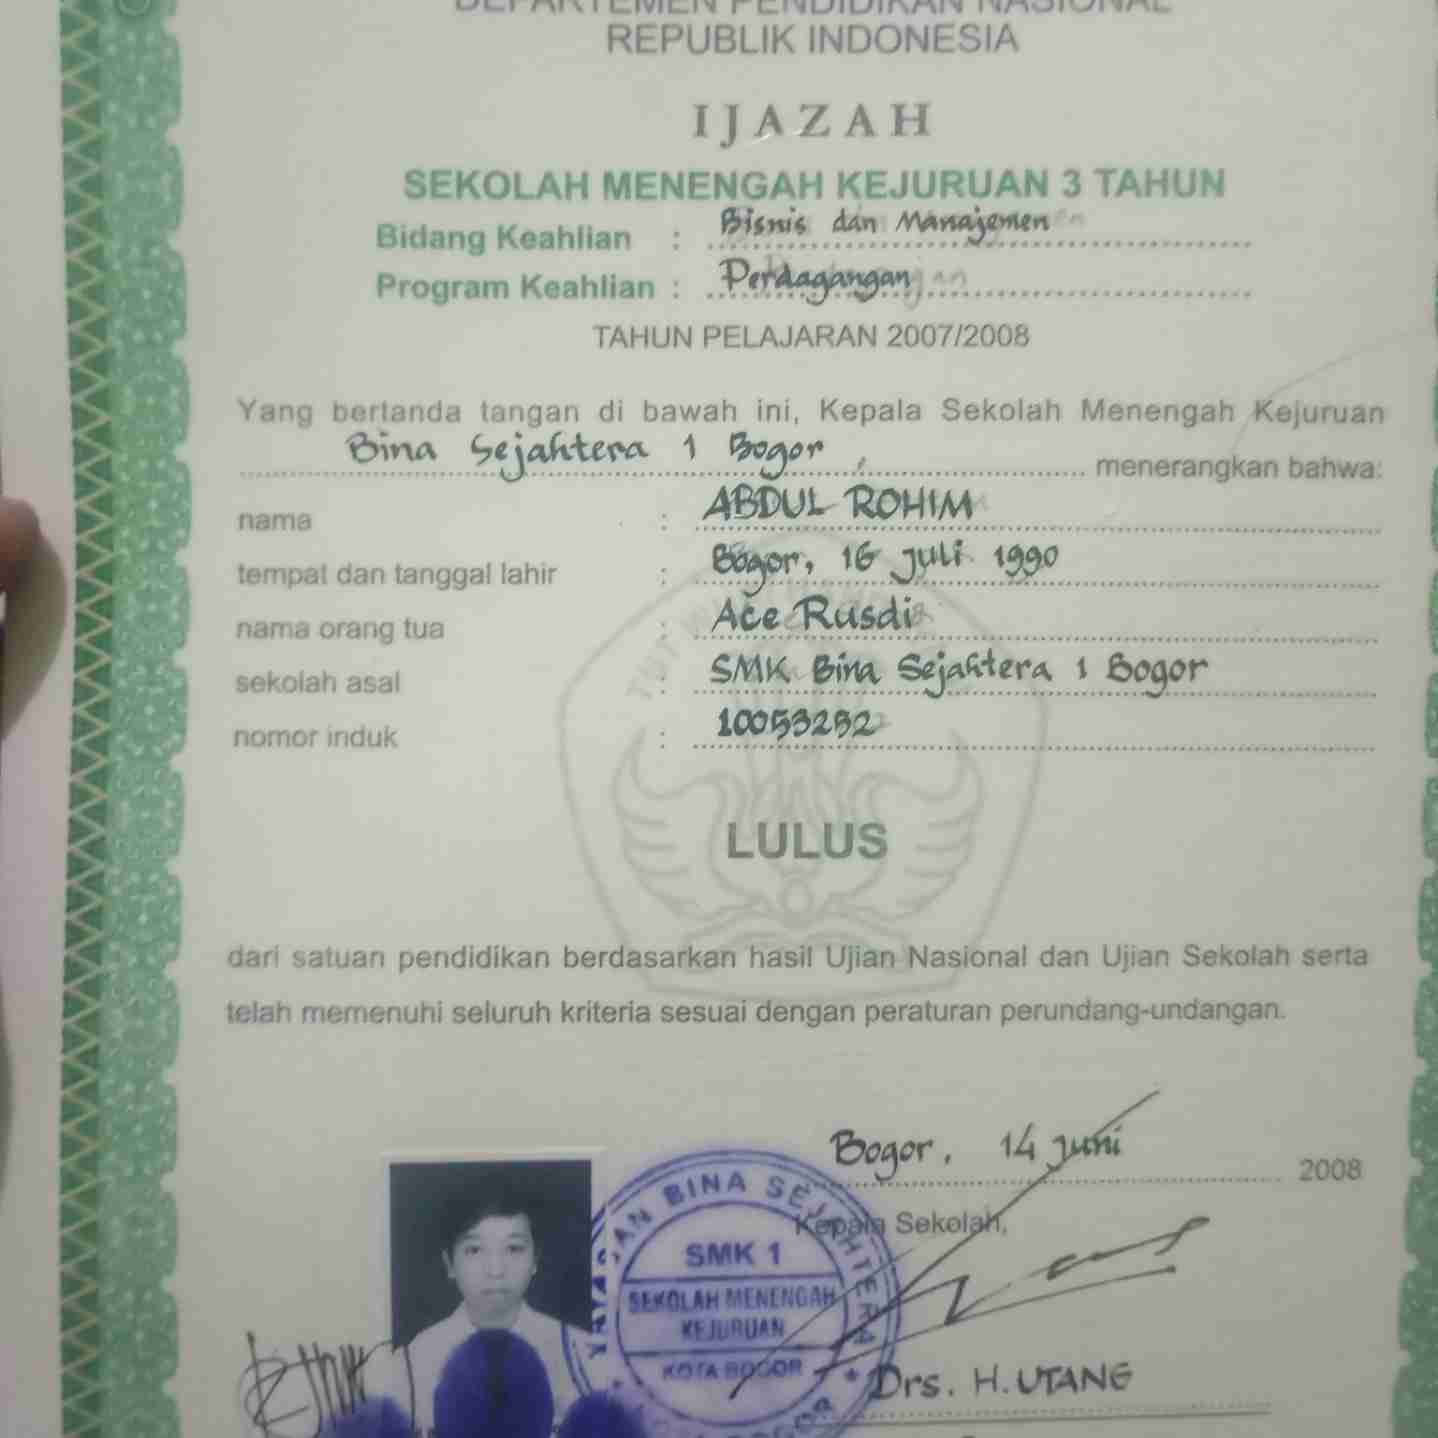 DEPARTEMEN PENDIDIKAN NASIONAL
REPUBLIK INDONESIA
IJAZAH
SEKOLAH MENENGAH KEJURUAN 3 TAHUN
Bidang Keahlian : Bisnis dan Manajemen
Program Keahlian : Perdagangan
TAHUN PELAJARAN 2007/2008
Yang bertanda tangan di bawah ini, Kepala Sekolah Menengah Kejuruan
Bina Sejahtera 1 Bogor menerangkan bahwa:
nama : ABDUL ROHIM
tempat dan tanggal lahir : Bogor, 16 Juli 1990
nama orang tua : Ace Rusdi
sekolah asal : SMK Bina Sejahtera 1 Bogor
nomor induk : 10053252
LULUS
dari satuan pendidikan berdasarkan hasil Ujian Nasional dan Ujian Sekolah serta
telah memenuhi seluruh kriteria sesuai dengan peraturan perundang-undangan.
Bogor, 14 Juni 2008
Kepala Sekolah,
YAYASAN BINA SEJAHTERA
SMK 1
SEKOLAH MENENGAH
KEJURUAN
KOTA BOGOR
Drs. H. UTANG